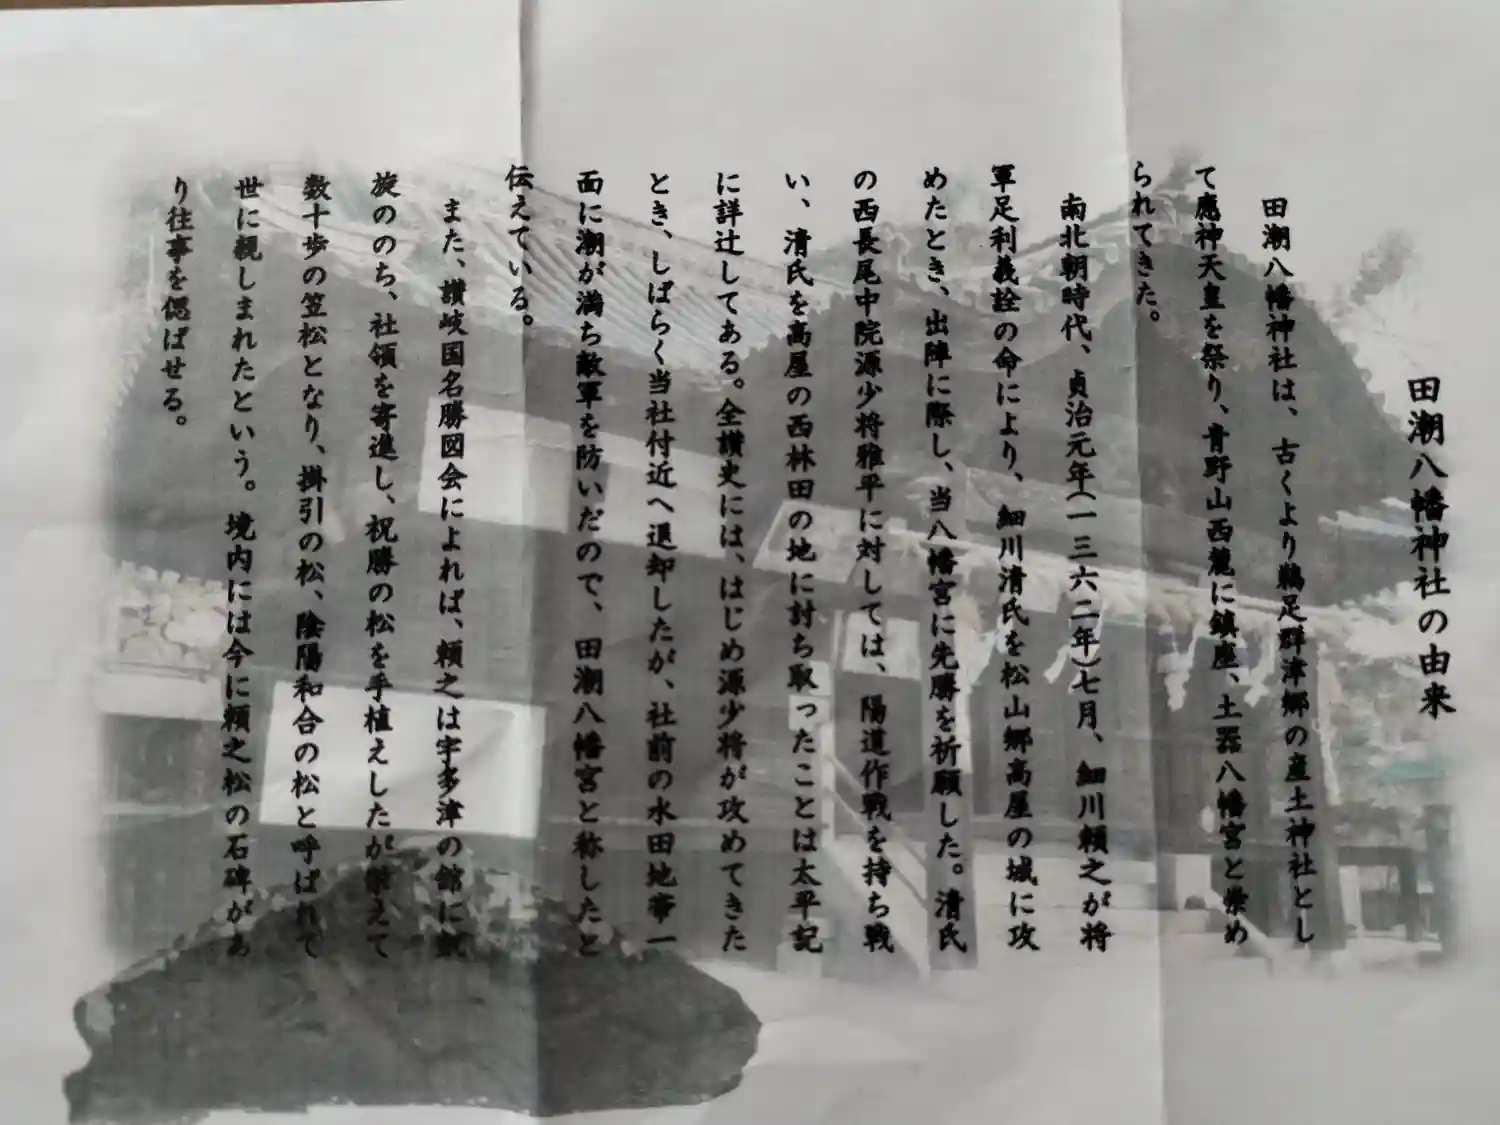 田潮八幡神社の由来
田潮八幡神社は、古くより鵜足群津郷の産土神社とし
て應神天皇を祭り、青野山西麓に鎮座、土器八幡宮と崇め
られてきた。
南北朝時代、貞治元年(一三六二年)七月、細川頼之が将
軍足利義詮の命により、細川清氏を松山郷高屋の城に攻
めたとき、出陣に際し、当八幡宮に先勝を祈願した。清氏
の西長尾中院源少将雅平に対しては、陽道作戦を持ち戦
い、清氏を高屋の西林田の地に討ち取ったことは太平記
に詳辻してある。全讃史には、はじめ源少将が攻めてきた
とき、しばらく当社付近へ退却したが、社前の水田地帯一
面に潮が満ち敵軍を防いだので、田潮八幡宮と称したと
伝えている。
また、讃岐国名勝図会によれば、頼之は宇多津の館に凱
旋ののち、社領を寄進し、祝勝の松を手植えしたが栄えて
数十歩の笠松となり、掛引の松、陰陽和合の松と呼ばれて
世に親しまれたという。境内には今に頼之松の石碑があ
り往事を偲ばせる。